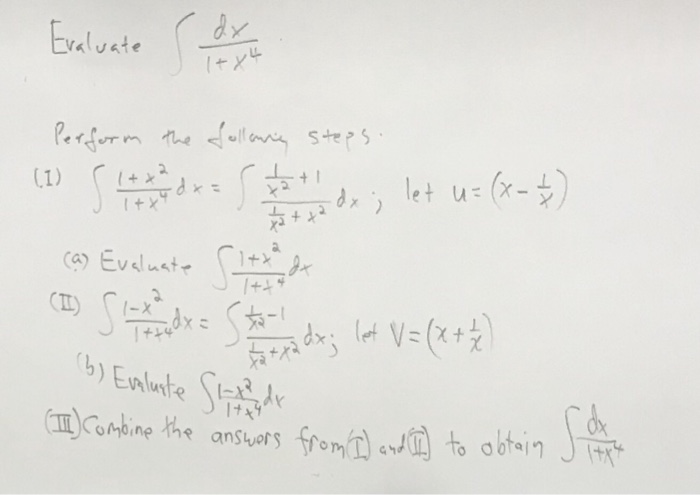 Evaluate ∫ dx/(1+x⁴)
Perform the following steps.
(I) ∫ (1+x²)/(1+x⁴) dx = ∫ (1/x² + 1)/(1/x² + x²) dx ; let u = (x - 1/x)
(a) Evaluate ∫ (1+x²)/(1+x⁴) dx
(II) ∫ (1-x²)/(1+x⁴) dx = ∫ (1/x² - 1)/(1/x² + x²) dx ; let V = (x + 1/x)
(b) Evaluate ∫ (1-x²)/(1+x⁴) dx
(III) Combine the answers from (I) and (II) to obtain ∫ dx/(1+x⁴)